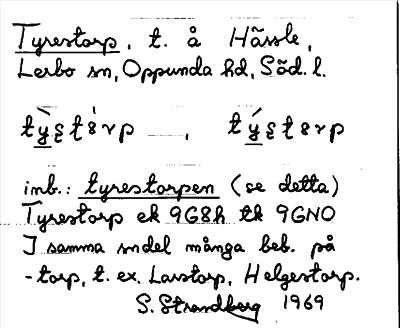 Tyrestorp, t. å Hässle,
Lerbo sn, Oppunda hd, Söd. l.
imb.: tyrestorpen (se detta)
Tyrestorp ek 9G8h tk 9GNO
I samma sndel många beb. på
-torp, t. ex. Larstorp, Helgestorp.
S. Strandberg 1969